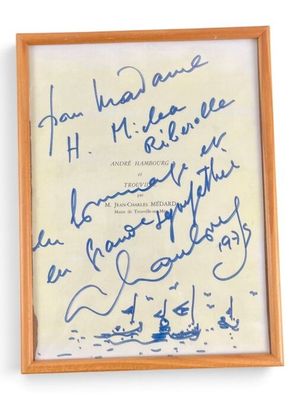 pour Madame
H. Michea
Riberolle
ANDRÉ HAMBOURG
et
TROUVILLE
par
M. JEAN-CHARLES MÉDARD
Maire de Trouville-sur-Mer
en hommage et
en grande sympathie
A Hambourg
1975